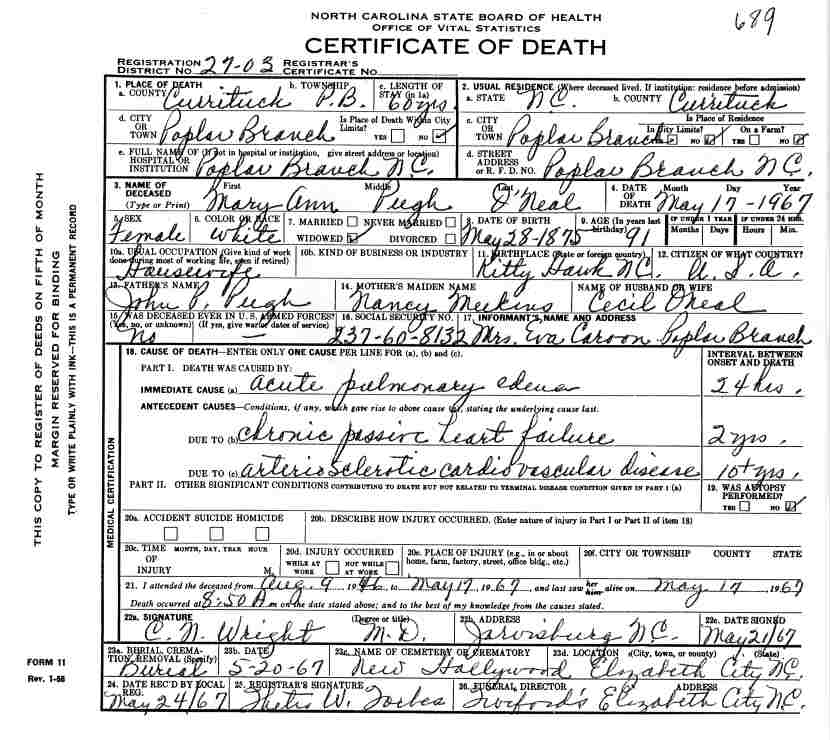 NORTH CAROLINA STATE BOARD OF HEALTH
OFFICE OF VITAL STATISTICS
689
CERTIFICATE OF DEATH
REGISTRATION DISTRICT No. 27-03 REGISTRAR'S CERTIFICATE No.
1. PLACE OF DEATH
a. COUNTY Currituck b. TOWNSHIP P.B. c. LENGTH OF STAY (in 1a) 60 yrs.
2. USUAL RESIDENCE (Where deceased lived. If institution: residence before admission)
a. STATE N.C. b. COUNTY Currituck
d. CITY OR TOWN Poplar Branch Is Place of Death Within City Limits? YES NO
c. CITY OR TOWN Poplar Branch Is Place of Residence In City Limits? NO On a Farm? YES NO
e. FULL NAME OF (If not in hospital or institution, give street address or location) HOSPITAL OR INSTITUTION Poplar Branch N.C.
d. STREET ADDRESS or R. F. D. NO. Poplar Branch N.C.
3. NAME OF DECEASED (Type or Print) First Mary Ann Middle Pugh Last O'Neal
4. DATE OF DEATH Month Day Year May 17-1967
5. SEX Female 6. COLOR OR RACE White 7. MARRIED NEVER MARRIED WIDOWED DIVORCED
8. DATE OF BIRTH May 28-1875 9. AGE (In years last birthday) 91 IF UNDER 1 YEAR Months Days IF UNDER 24 HRS. Hours Min.
10a. USUAL OCCUPATION (Give kind of work done during most of working life, even if retired) Housewife 10b. KIND OF BUSINESS OR INDUSTRY
11. BIRTHPLACE (State or foreign country) Kitty Hawk N.C. 12. CITIZEN OF WHAT COUNTRY? U.S.A.
13. FATHER'S NAME John P. Pugh 14. MOTHER'S MAIDEN NAME Nancy Meekins NAME OF HUSBAND OR WIFE Cecil O'Neal
15. WAS DECEASED EVER IN U. S. ARMED FORCES? (Yes, no, or unknown) (If yes, give war or dates of service) No —
16. SOCIAL SECURITY NO. 237-60-8132 17. INFORMANT'S NAME AND ADDRESS Mrs. Eva Caroon Poplar Branch
18. CAUSE OF DEATH—ENTER ONLY ONE CAUSE PER LINE FOR (a), (b) and (c). INTERVAL BETWEEN ONSET AND DEATH
PART I. DEATH WAS CAUSED BY:
IMMEDIATE CAUSE (a) acute pulmonary edema 24 hrs.
ANTECEDENT CAUSES—Conditions, if any, which gave rise to above cause (a), stating the underlying cause last.
DUE TO (b) chronic passive heart failure 2 yrs.
DUE TO (c) arteriosclerotic cardiovascular disease 10+ yrs.
PART II. OTHER SIGNIFICANT CONDITIONS CONTRIBUTING TO DEATH BUT NOT RELATED TO TERMINAL DISEASE CONDITION GIVEN IN PART I (a)
19. WAS AUTOPSY PERFORMED? YES NO
20a. ACCIDENT SUICIDE HOMICIDE 20b. DESCRIBE HOW INJURY OCCURRED. (Enter nature of injury in Part I or Part II of item 18)
20c. TIME OF INJURY MONTH, DAY, YEAR HOUR M. 20d. INJURY OCCURRED WHILE AT WORK NOT WHILE AT WORK
20e. PLACE OF INJURY (e.g., in or about home, farm, factory, street, office bldg., etc.) 20f. CITY OR TOWNSHIP COUNTY STATE
21. I attended the deceased from Aug. 9 1946 to May 17, 1967 and last saw her him alive on May 17 1967
Death occurred at 8:50 A m on the date stated above; and to the best of my knowledge from the causes stated.
22a. SIGNATURE (Degree or title) C. N. Wright M.D. 22b. ADDRESS Jarvisburg N.C. 22c. DATE SIGNED May 21/67
23a. BURIAL, CREMATION, REMOVAL (Specify) Burial 23b. DATE 5-20-67 23c. NAME OF CEMETERY OR CREMATORY New Hollywood 23d. LOCATION (City, town, or county) (State) Elizabeth City N.C.
24. DATE REC'D BY LOCAL REG. May 24/67 25. REGISTRAR'S SIGNATURE W. Forbes 26. FUNERAL DIRECTOR ADDRESS Twiford's Elizabeth City N.C.
THIS COPY TO REGISTER OF DEEDS ON FIFTH OF MONTH
MARGIN RESERVED FOR BINDING
TYPE OR WRITE PLAINLY WITH INK—THIS IS A PERMANENT RECORD
MEDICAL CERTIFICATION
FORM 11
Rev. 1-56